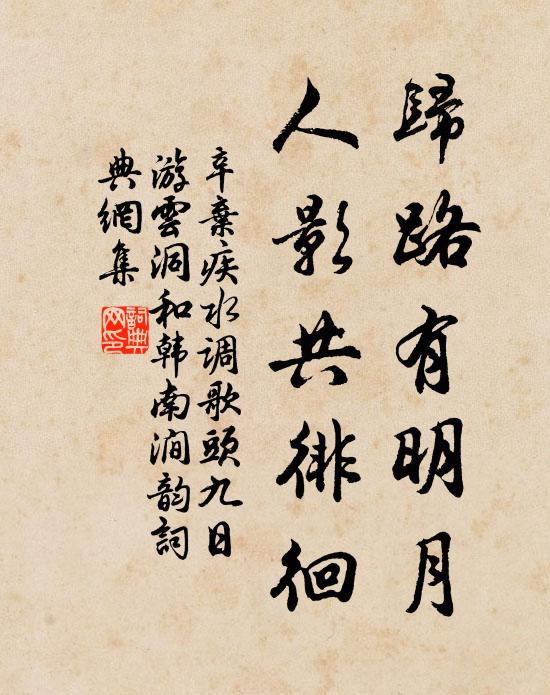 歸路有明月
人影共徘徊
辛棄疾水调歌頭九日
游雲洞和韩南澗韵詞
典網集
詞典
网印